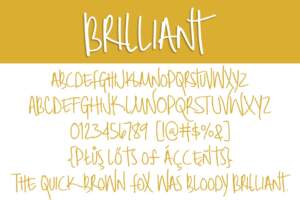 BRILLIANT
ABCDEFGHIJKLMNOPQRSTUVWXYZ
ABCDEFGHIJKLMNOPQRSTUVWXYZ
0123456789 [!@#$%&]
{PŁUŞ LŐTS OF ÁÇCENTS}
THE QUICK BROWN FOX WAS BLOODY BRILLIANT.